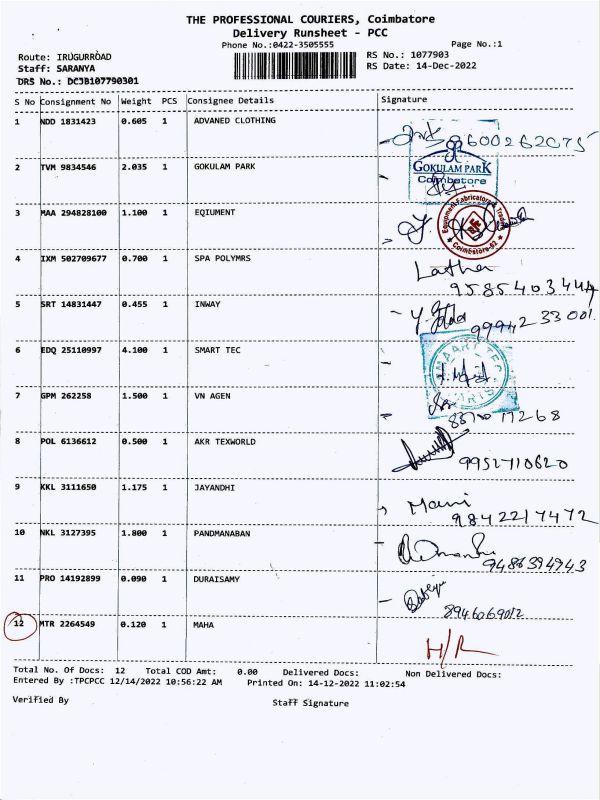 THE PROFESSIONAL COURIERS, Coimbatore
Delivery Runsheet - PCC
Phone No.:0422-3505555
Page No.:1
Route: IRUGURROAD
RS No.: 1077903
Staff: SARANYA
RS Date: 14-Dec-2022
DRS No.: DCJB107790301
S No Consignment No Weight PCS Consignee Details Signature
1 NDD 1831423 0.605 1 ADVANED CLOTHING
9600262075
2 TVM 9834546 2.035 1 GOKULAM PARK
GOKULAM PARK
Coimbatore
3 MAA 294828100 1.100 1 EQIUMENT
Equipment Fabricators Traders
Coimbatore-62
4 IXM 502709677 0.700 1 SPA POLYMRS
Latha
9585403444
5 SRT 14831447 0.455 1 INWAY
9994233001
6 EDQ 25110997 4.100 1 SMART TEC
7 GPM 262258 1.500 1 VN AGEN
8 POL 6136612 0.500 1 AKR TEXWORLD
9952710620
9 KKL 3111650 1.175 1 JAYANDHI
Mani
9842217472
10 NKL 3127395 1.800 1 PANDMANABAN
9486394943
11 PRO 14192899 0.090 1 DURAISAMY
8946069012
12 MTR 2264549 0.120 1 MAHA
H/R
Total No. Of Docs: 12 Total COD Amt: 0.00 Delivered Docs: Non Delivered Docs:
Entered By :TPCPCC 12/14/2022 10:56:22 AM Printed On: 14-12-2022 11:02:54
Verified By
Staff Signature